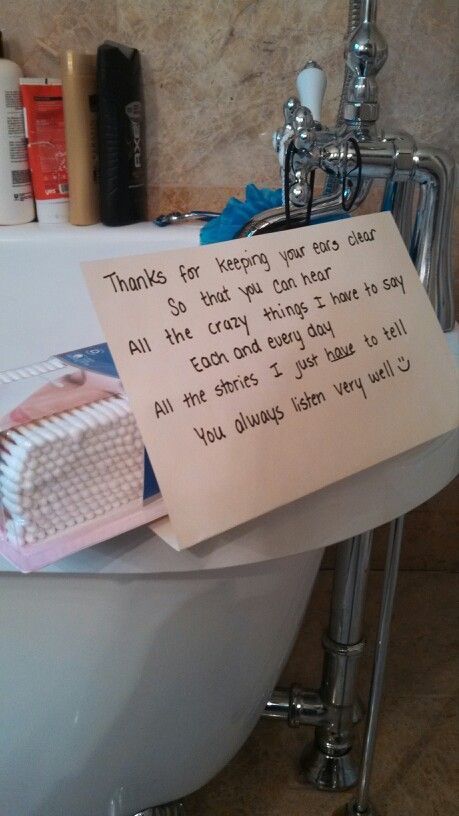 Thanks for keeping your ears clear
So that you can hear
All the crazy things I have to say
Each and every day
All the stories I just have to tell
You always listen very well :)
AXE